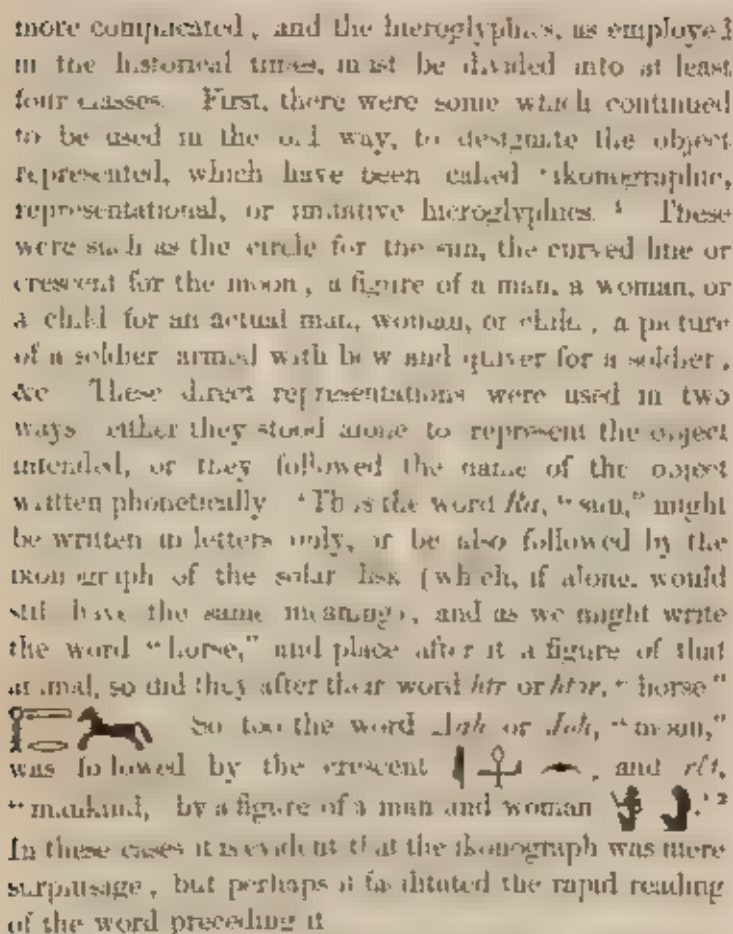 more complicated, and the hieroglyphics, as employed
in the historical times, must be divided into at least
four classes. First, there were some which continued
to be used in the old way, to designate the object
represented, which have been called 'ikonographic,
representational, or imitative hieroglyphics.' ¹ These
were such as the circle for the sun, the curved line or
crescent for the moon, a figure of a man, a woman, or
a child for an actual man, woman, or child, a picture
of a soldier armed with bow and quiver for a soldier,
&c. These direct representations were used in two
ways either they stood alone to represent the object
intended, or they followed the name of the object
written phonetically 'Thus the word Ra, "sun," might
be written in letters only, or be also followed by the
ikonograph of the solar disk (which, if alone, would
still have the same meaning), and as we might write
the word "horse," and place after it a figure of that
animal, so did they after their word htr or htor, "horse"
So too the word Aah or Joh, "moon,"
was followed by the crescent , and rôt,
"mankind, by a figure of a man and woman .' ²
In these cases it is evident that the ikonograph was mere
surplusage, but perhaps it facilitated the rapid reading
of the word preceding it